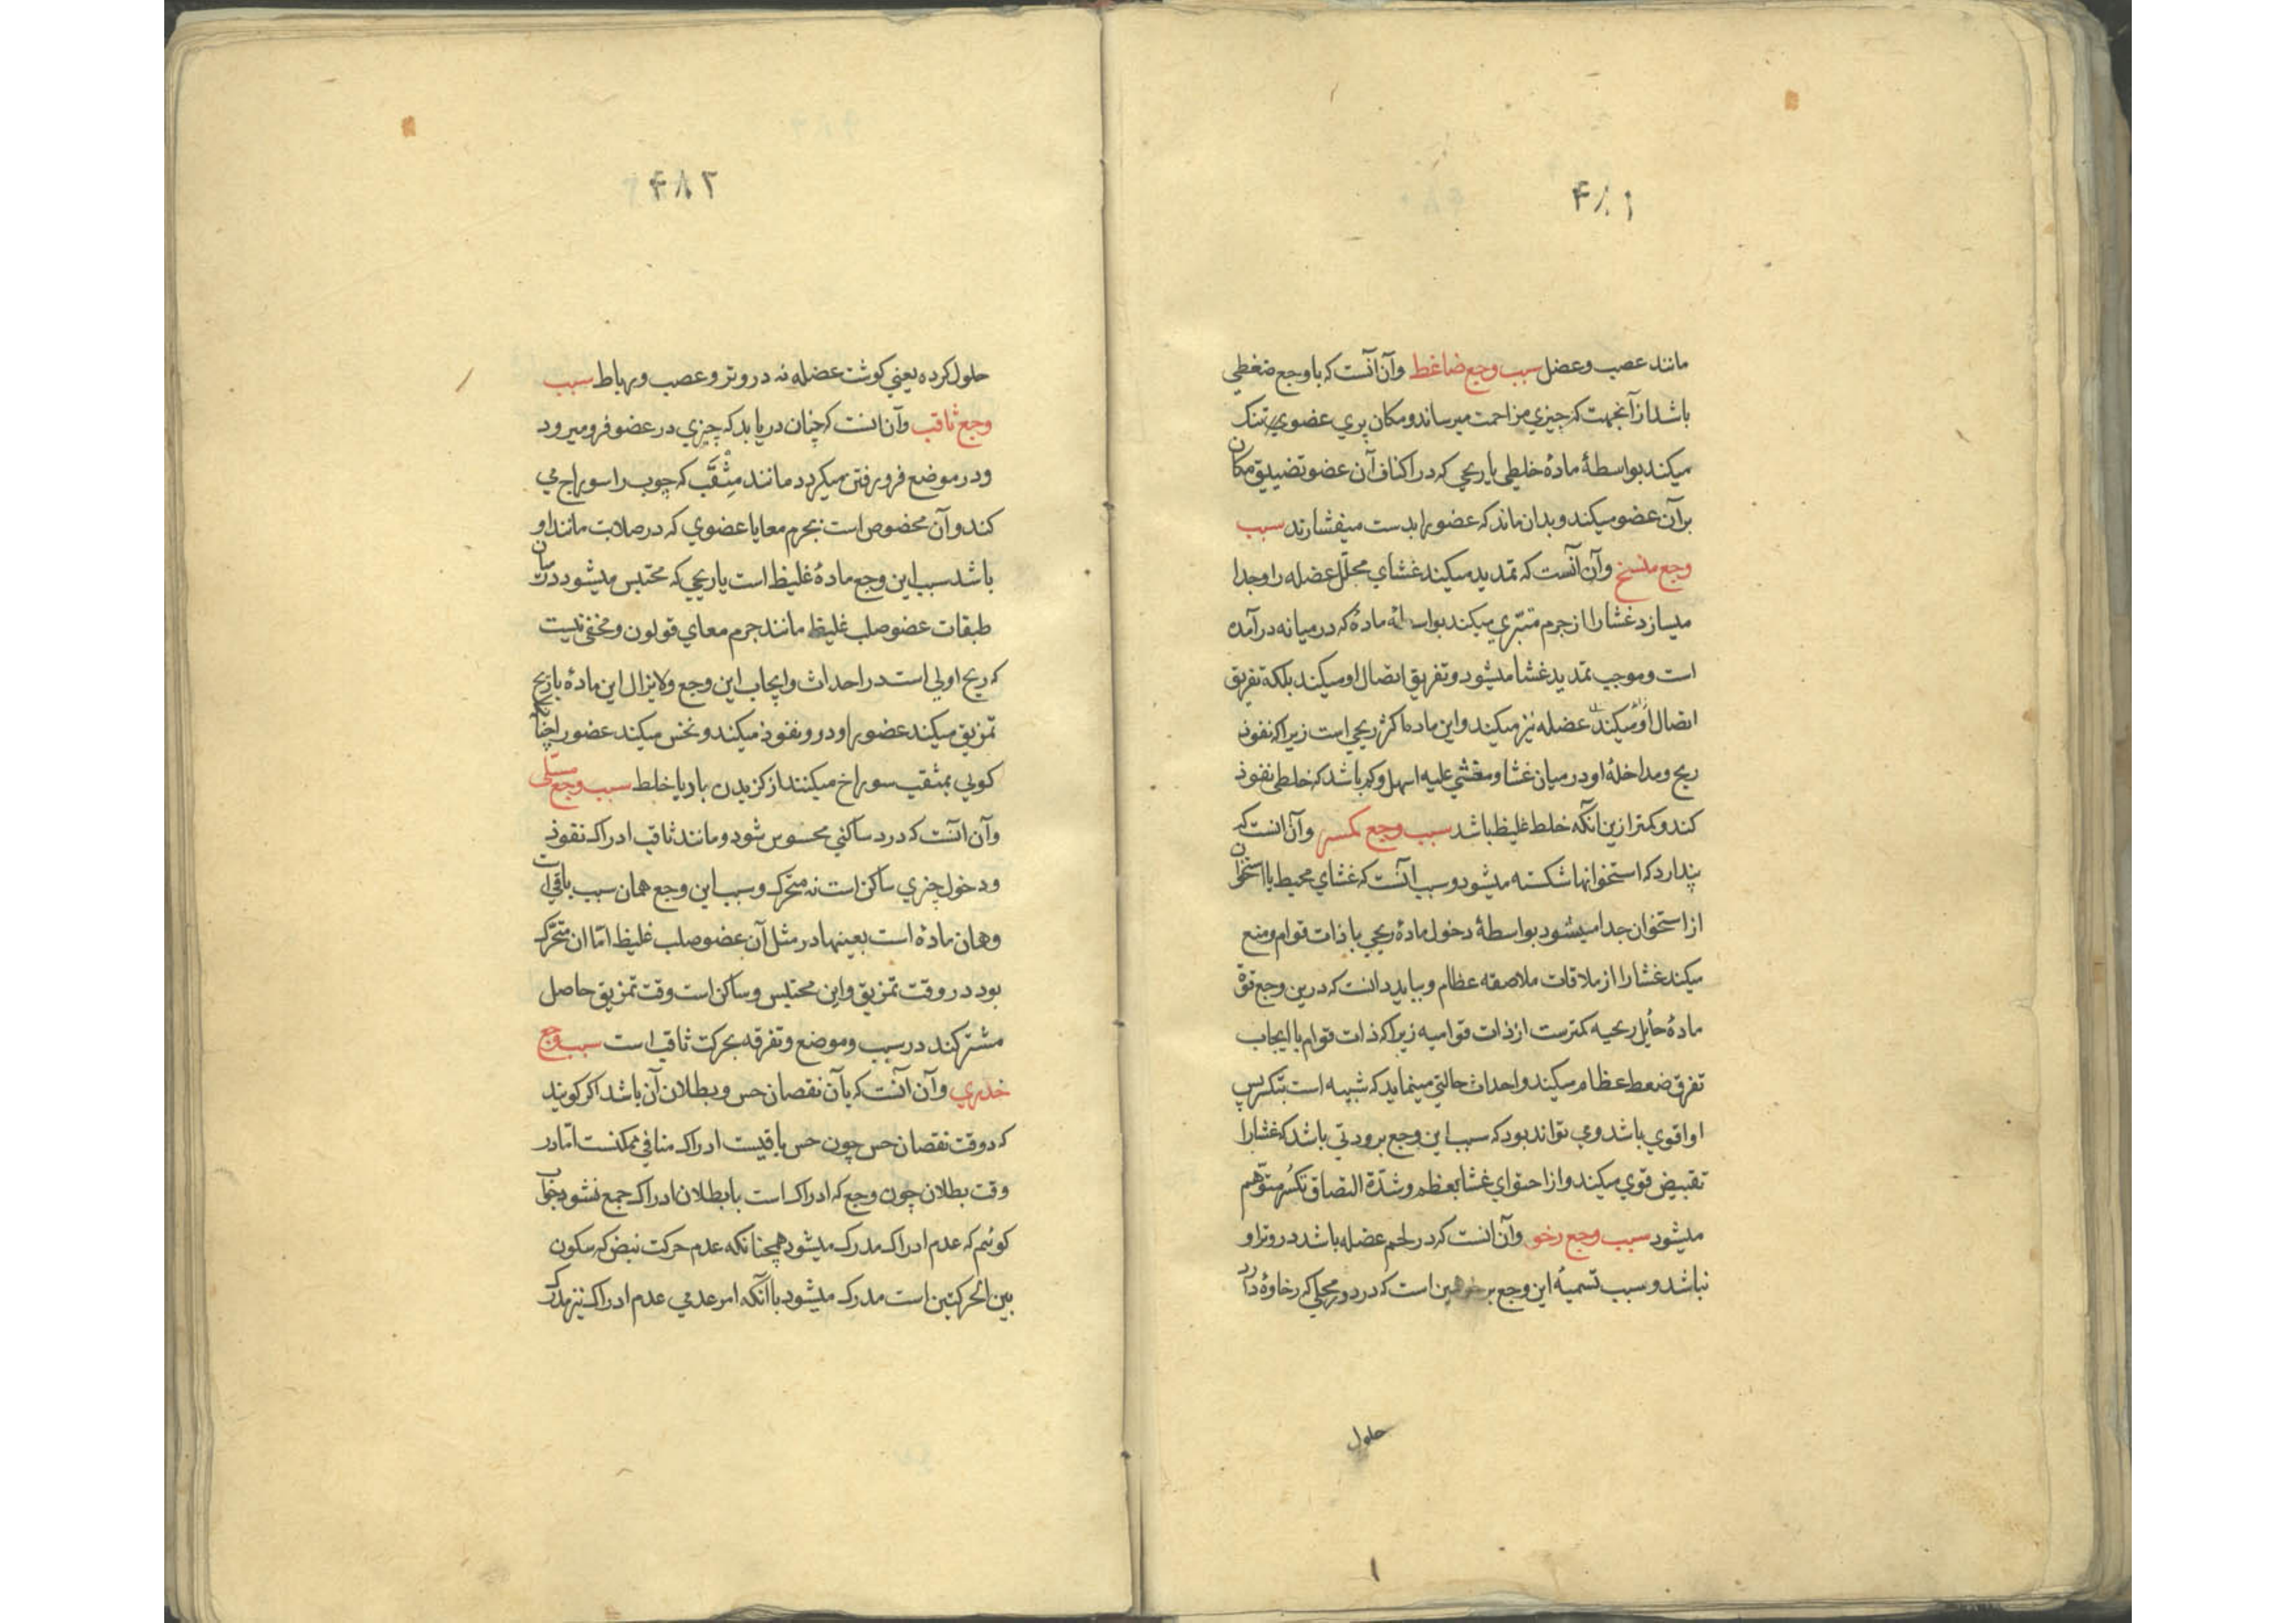 ۴۸۱
مانند عصب و عضل سبب وجع ضاغط وآن آنست که با وجع ضغطی
باشد از آنجهت که چیزي مزاحمت میرساند و مکان بري عضوي تنک
میکند بواسطهٔ مادهٔ خلطی یا ریحی که در اکناف آن عضو تضییق مکان
بر آن عضو میکند و بدان ماند که عضو را بدست میفشارند سبب
وجع مفسخ وآن آنست که تمدید میکند غشاي مجلل عضله را و جدا
میسازد غشا را از جرم متبری میکند بواسطهٔ مادهٔ که در میانه در آمده
است و موجب تمدید غشا میشود و تفریق اتصال او میکند بلکه تفریق
اتصال او میکند عضله نیز میکند و این ماده اکثر ریحی است زیرا که نفوذ
ریح و مداخلهٔ او در میان غشا و مغشی علیه اسهل و کم باشد که خلطی نفوذ
کند و کمتر ازین آنکه خلط غلیظ باشد سبب وجع مکسر وآن آنست که
پندارد که استخوانها شکسته میشود و سبب آنست که غشاي محیط با استخوان
از استخوان جدا میشود بواسطهٔ دخول مادهٔ ریحی یا ذات قوام و منع
میکند غشا را از ملاقات ملاصقه عظام و بباید دانست که درین وجع قوّة
مادهٔ حایل ریحیه کمترست از ذات قوامیه زیرا که ذات قوام با ایجاب
تفرق ضغط عظام میکند و احداث حالتی مینماید که شبیه است بتکسر پس
او اقوي باشد و می تواند بود که سبب این وجع برودتی باشد که غشا را
تقبیض قوي میکند و از احتواي غشا بعظم و شدّة التصاق تکسُر متوّهم
میشود سبب وجع رخو وآن آنست که در لحم عضله باشد در وتر او
نباشد و سبب تسمیهٔ این وجع برخو همین است که درد در محلی که رخاوة دارد
حلول
۴۸۲
حلول کرده یعنی کوشت عضله نه در وتر و عصب و رباط سبب
وجع ثاقب وآن آنست که چنان دریابد که چیزي در عضو فرو میرود
و در موضع فرو رفتن میکردد مانند مِثْقَب که چوب را سوراخ می
کند وآن مخصوص است بجرم معا یا عضوي که در صلابت مانند او
باشد سبب این وجع مادهٔ غلیظ است یا ریحی که محتبس میشود در میان
طبقات عضو صلب غلیظ مانند جرم معاي قولون و مخفی نیست
که ریح اولی است در احداث و ایجاب این وجع و لایزال این مادهٔ یا ریح
تمزیق میکند عضو را و در و نفوذ میکند و نخس میکند عضو را چنانکه
کویی بمثقب سوراخ میکنند از کزیدن باد یا خلط سبب وجع مسلی
وآن آنست که درد ساکنی محسوس شود و مانند ثاقب ادراک نفوذ
و دخول چیزي ساکن است نه متحرک و سبب این وجع همان سبب باقی است
و همان مادهٔ است بعینها در مثل آن عضو صلب غلیظ امّا ان متحرّک
بود در وقت تمزیق و این محتبس و ساکن است وقت تمزیق حاصل
مشترکند در سبب و موضع و تفرقه بحرکت ثاقب است سبب وجع
خدري وآن آنست که بآن نقصان حس و بطلان آن باشد اکر کویند
که در وقت نقصان حس چون حس باقیست ادراک منافی ممکنست امّا در
وقت بطلان چون وجع که ادراک است با بطلان ادراک جمع نشود جواب
کوئیم که عدم ادراک مدرک میشود همچنانکه عدم حرکت نبض که سکون
بین الحرکتین است مدرک میشود با آنکه امر عدمی عدم ادراک نیز مدرک